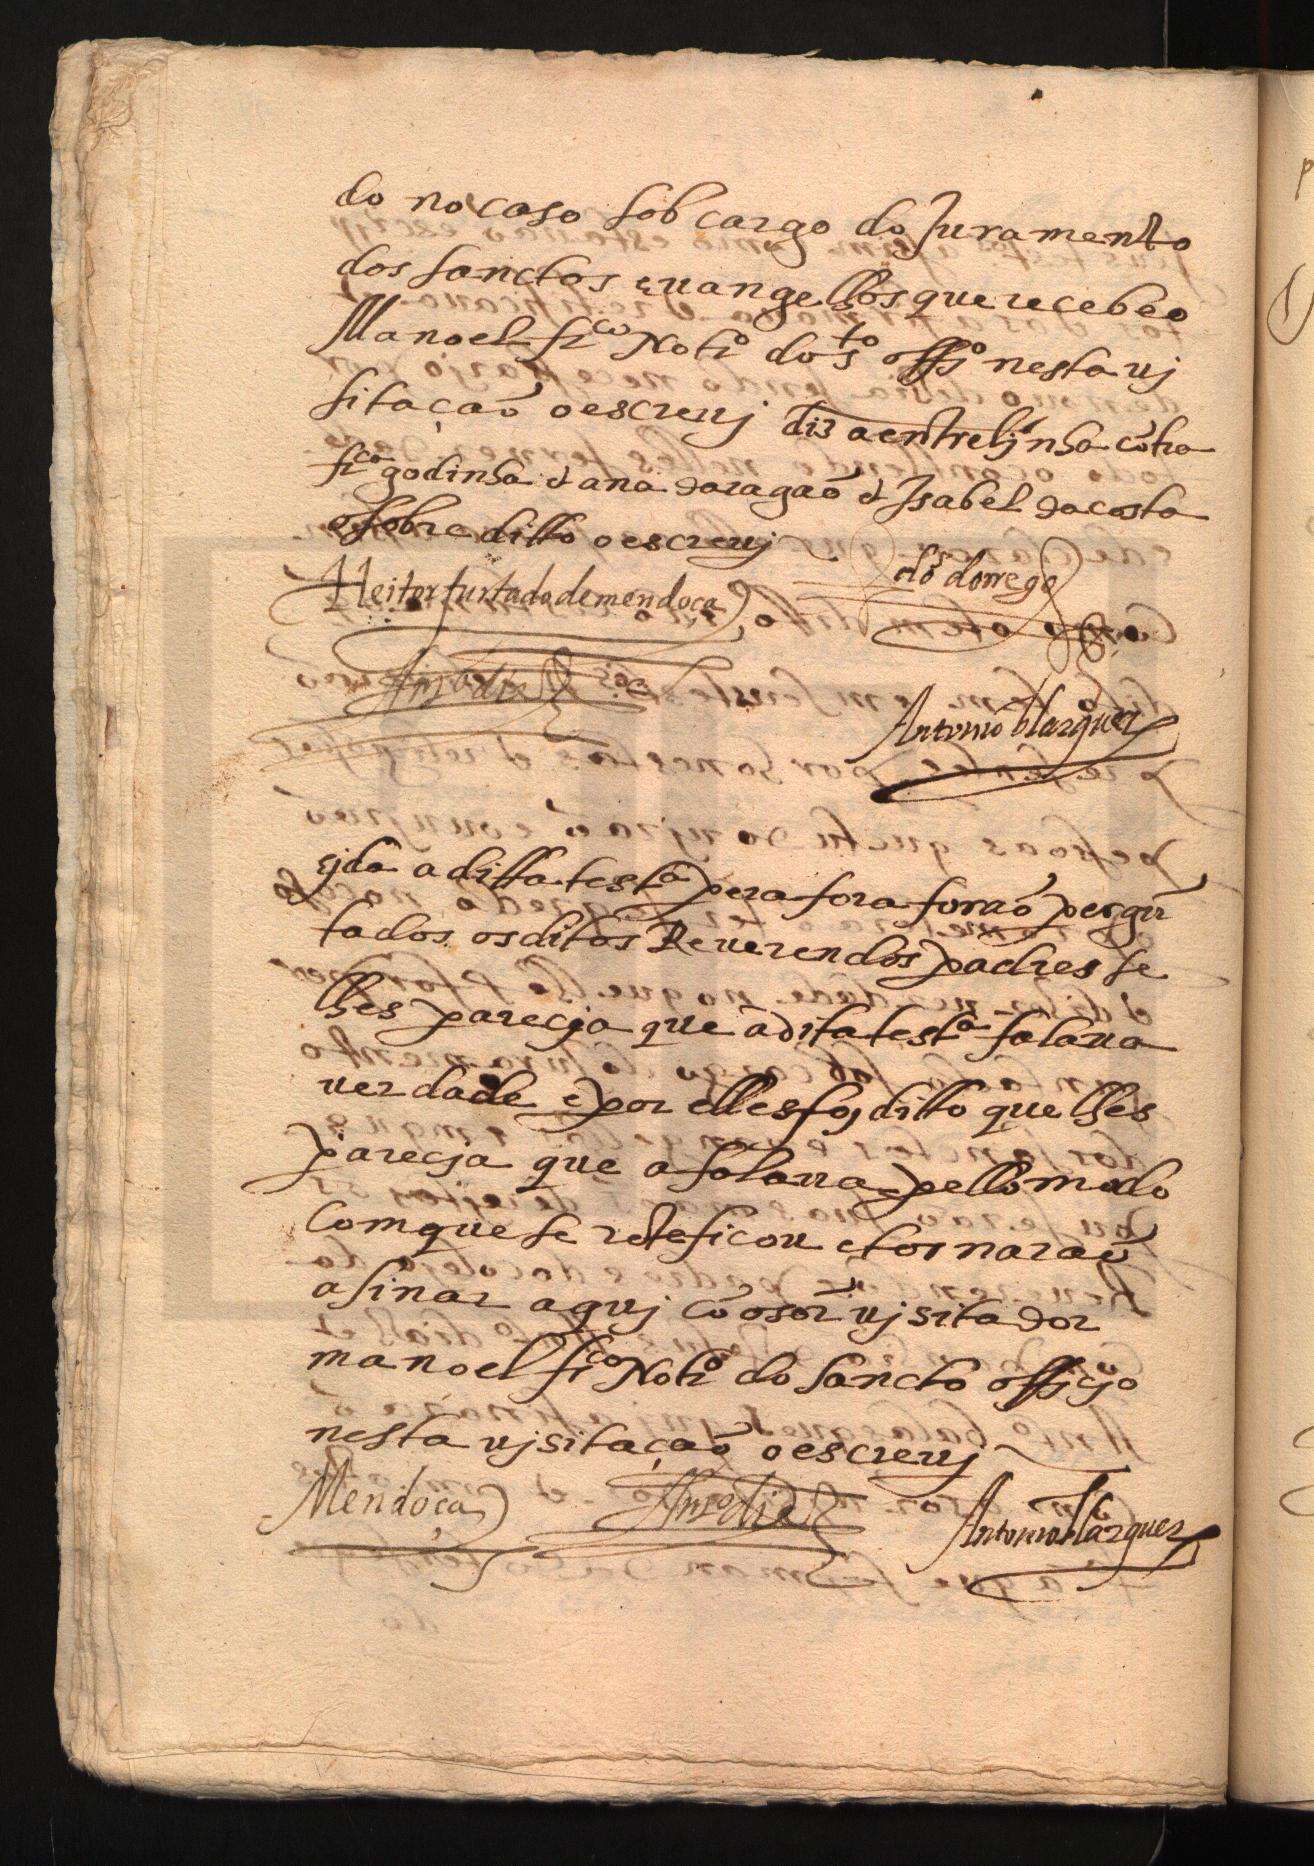 do no caso sob cargo do Juramento
dos sanctos euangelhos que recebeo
Manoel frco Notro do sto offo nesta vj
sitação o escrevj diz a entrelinha cõtra
frca godinha & ana daragaõ & Isabel da costa
o sobreditto o escrevj
Heitor furtado de mendoça do rego
Antonio blazquez
E ida a ditta testa pera fora foraõ pergũ
tados os ditos Reuerendos padres se
lhes parecja que a dita testa falaua
uerdade e por elles foj ditto que lhes
parecja que a falaua pello modo
com que se reteficou e tornaraõ
asinar aquj cõ o sor vjsitador
manoel frco Notro do sancto officjo
nesta vjsitaçaõ o escrevj
Mendoça Antonio blazquez